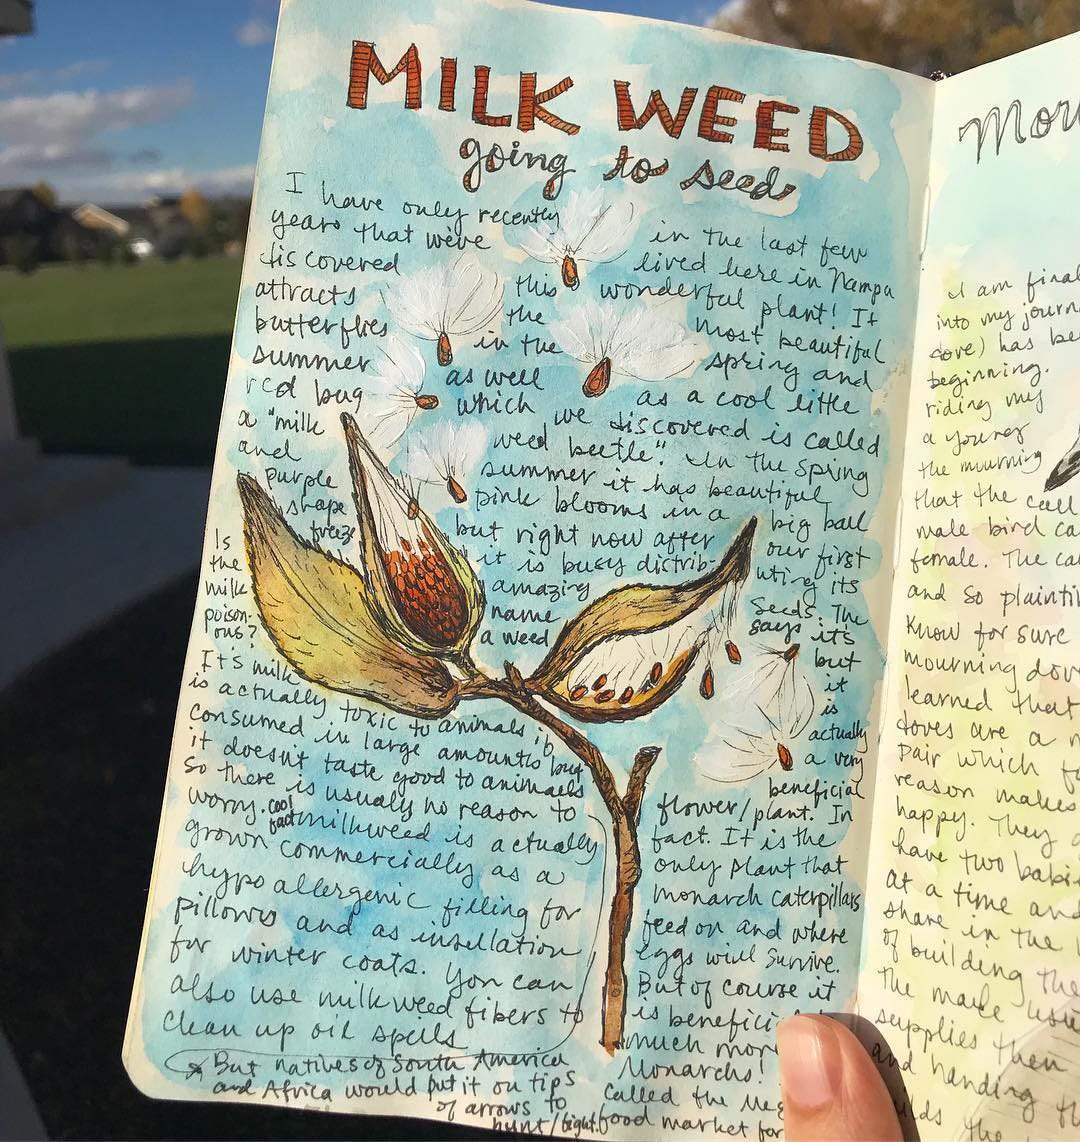 MILK WEED
going to seed
I have only recently in the last few
years that we've lived here in Nampa
discovered this wonderful plant! It
attracts the most beautiful
butterflies in the spring and
summer as well as a cool little
red bug which we discovered is called
a "milk weed beetle." In the spring
and summer it has beautiful
purple pink blooms in a big ball
shape but right now after our first
freeze it is busy distrib- uting its
amazing seeds. The
name says it's
a weed but
it
is
actually
a very
beneficial
flower/plant. In
fact. It is the
only plant that
monarch caterpillars
feed on and where
eggs will survive.
But of course it
is
much more
Monarchs!
called the
food market for
Is
the
milk
poison-
ous?
It's milk
is actually toxic to animals if
consumed in large amounts but
it doesn't taste good to animals
so there is usually no reason to
worry. cool fact milkweed is actually
grown commercially as a
hypo allergenic filling for
pillows and as insullation
for winter coats. You can
also use milkweed fibers to
clean up oil spells
But natives of South America
and Africa would put it on tips
of arrows to
hunt/fight.
I am final
into my journ
dove) has be
beginning.
riding my
a younger
the mourning
that the call
male bird ca
female. The ca
and so plainti
know for sure
mourning dov
learned that
doves are a
pair which
reason makes
happy. They
have two babi
at a time and
share in the
of building the
The male usu
supplies then
and handing th
the